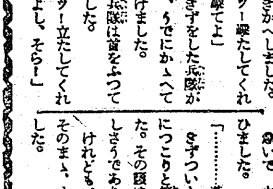 きがへしました。
ツー嶸たしてくれ
嶸てよ」
きずをした兵隊が
、うでにかゝへて
けました。
兵隊は首をふつて
した。
ツー立たしてくれ
よし、そら！」
ひました。
「………
きずつい
につこりと
た。その
しさうであ
けれども
そのまゝ、
した。